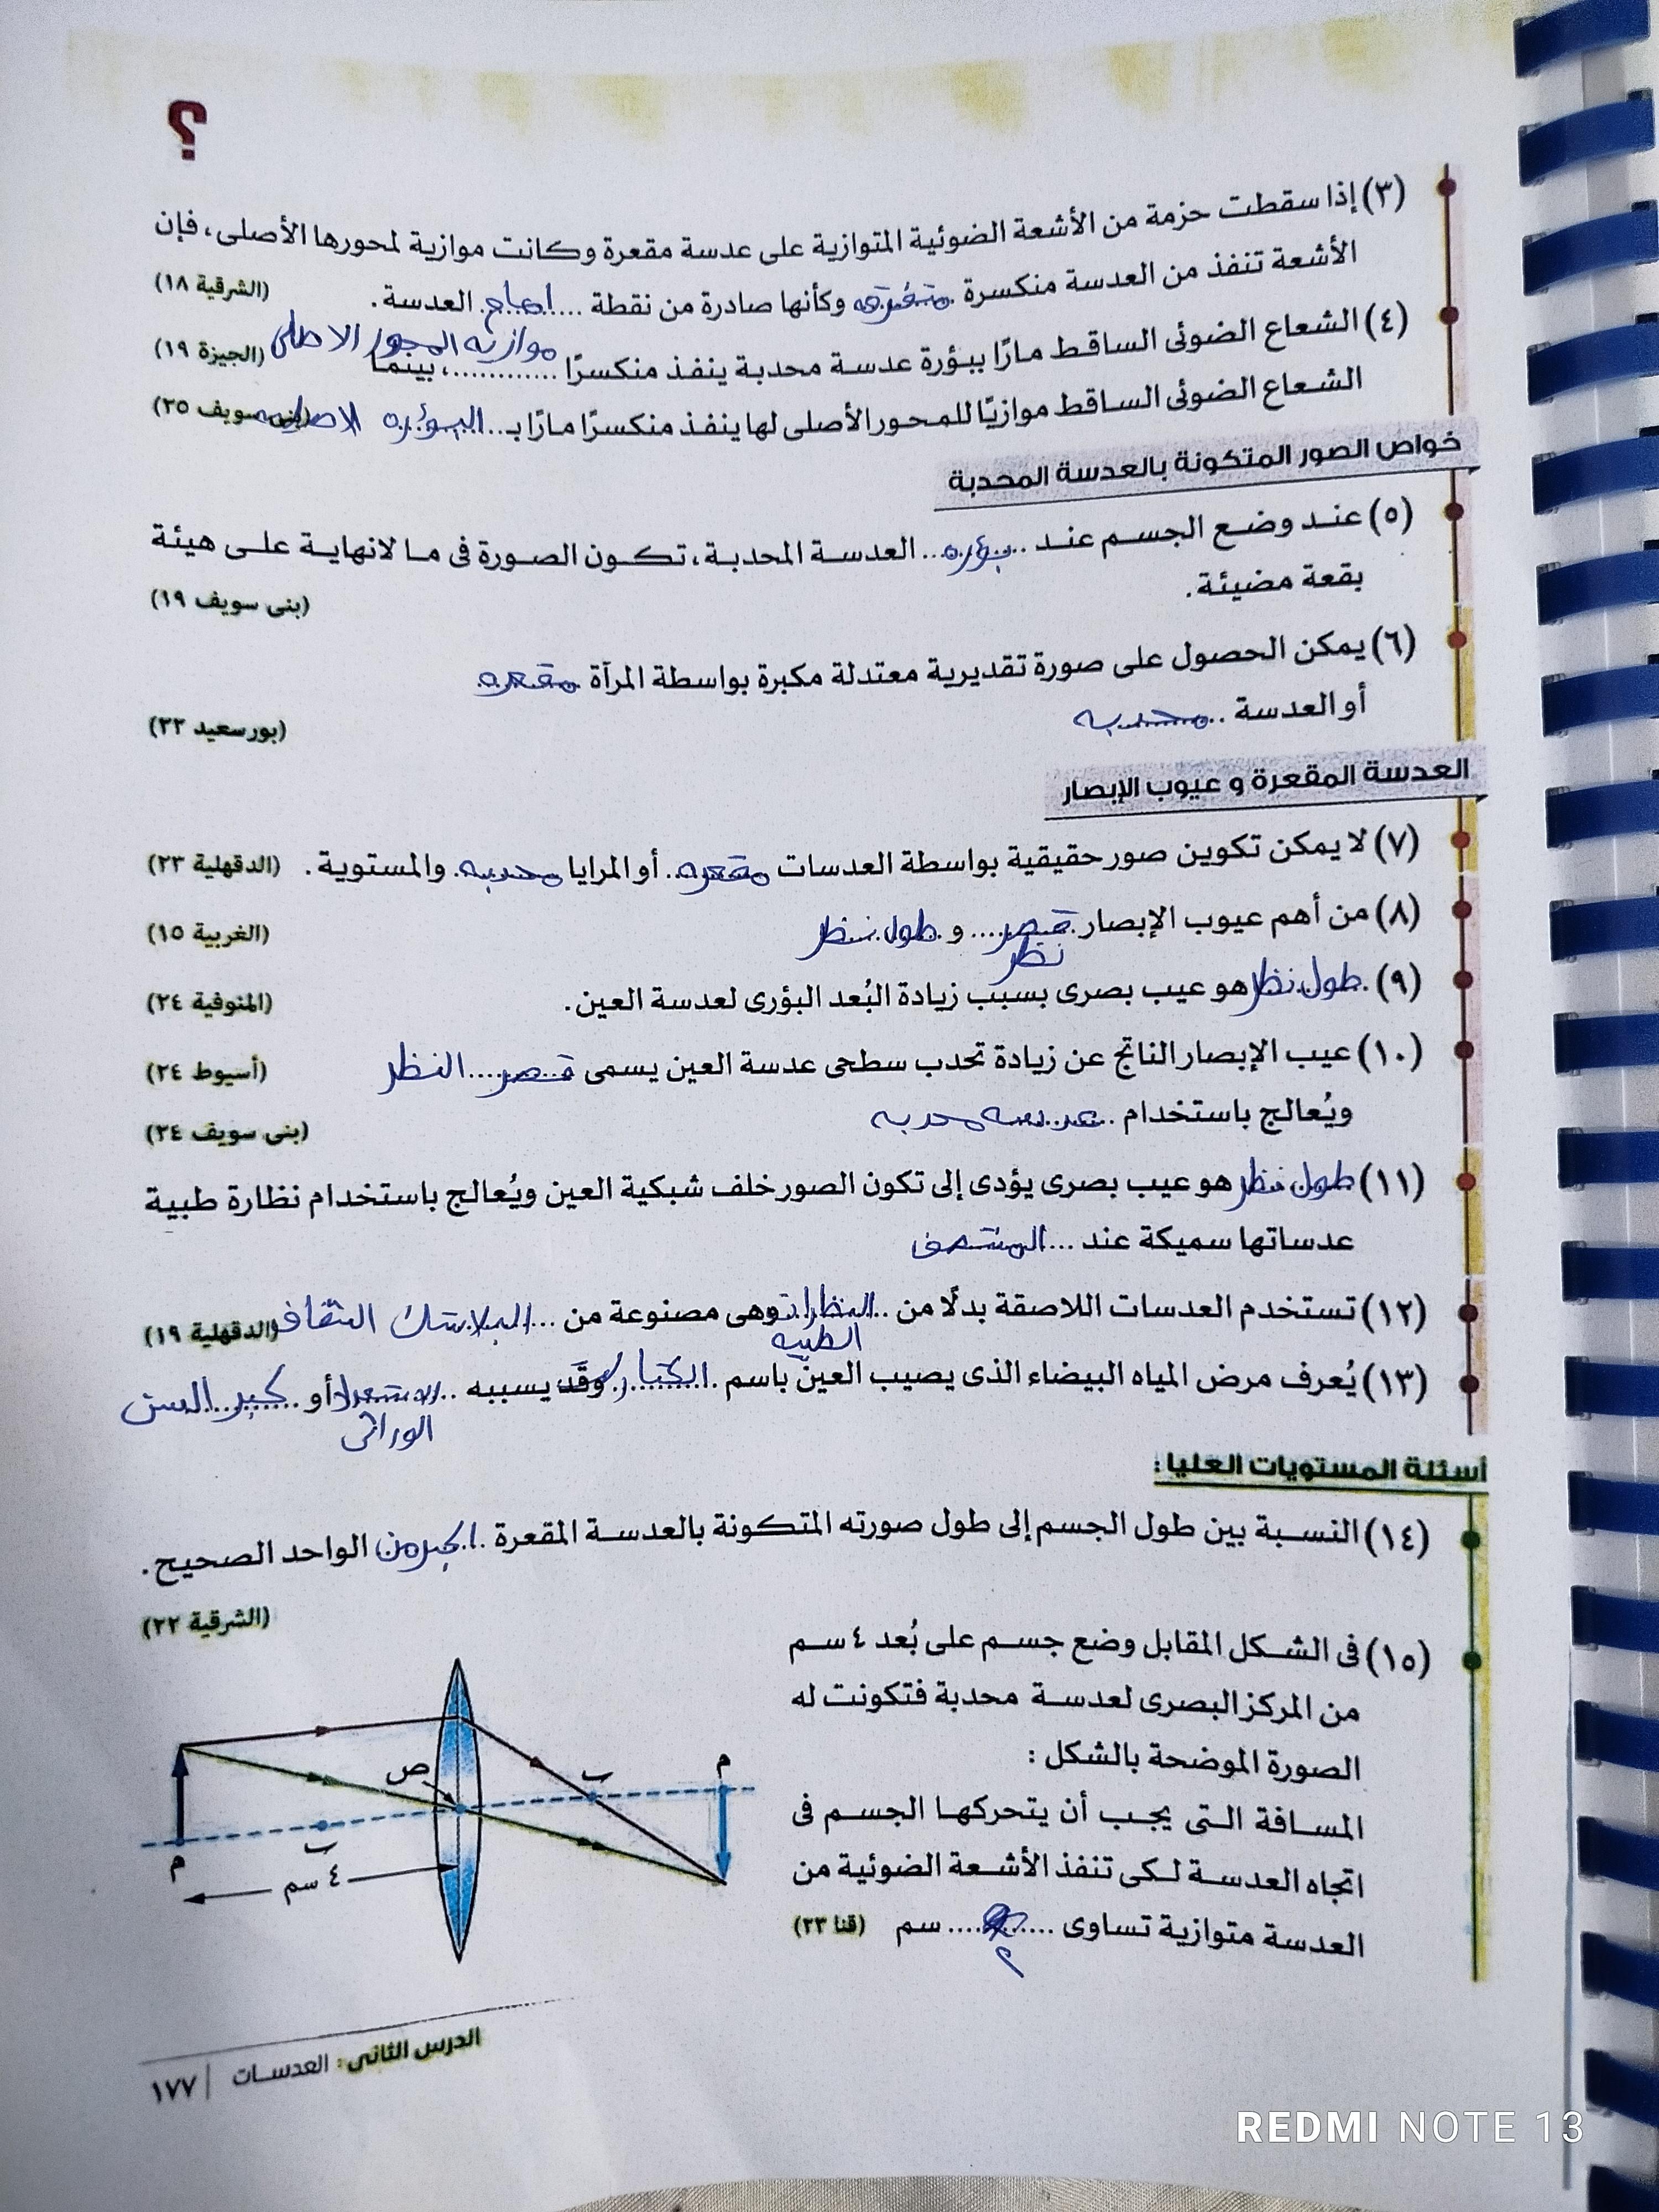 ؟
(٣) إذا سقطت حزمة من الأشعة الضوئية المتوازية على عدسة مقعرة وكانت موازية لمحورها الأصلى، فإن
الأشعة تنفذ من العدسة منكسرة متفرقه وكأنها صادرة من نقطة .... امام العدسة. (الشرقية ١٨)
(٤) الشعاع الضوئى الساقط مارًا ببؤرة عدسة محدبة ينفذ منكسرًا ............، بينما موازيه المحور الاصلى (الجيزة ١٩)
الشعاع الضوئى الساقط موازيًا للمحور الأصلى لها ينفذ منكسرًا مارًا بـ... البؤره الاصليه (بنى سويف ٢٥)
خواص الصور المتكونة بالعدسة المحدبة
(٥) عند وضع الجسم عند .. بؤره ... العدسة المحدبة، تكون الصورة فى ما لانهاية على هيئة
بقعة مضيئة. (بنى سويف ١٩)
(٦) يمكن الحصول على صورة تقديرية معتدلة مكبرة بواسطة المرآة مقعره
أو العدسة .. محدبه (بورسعيد ٢٢)
العدسة المقعرة و عيوب الإبصار
(٧) لا يمكن تكوين صور حقيقية بواسطة العدسات مقعره. أو المرايا محدبه. والمستوية. (الدقهلية ٢٣)
(٨) من أهم عيوب الإبصار قصر .... و طول نظر (الغربية ١٥)
نظر
(٩) طول نظر هو عيب بصرى بسبب زيادة البُعد البؤرى لعدسة العين. (المنوفية ٢٤)
(١٠) عيب الإبصار الناتج عن زيادة تحدب سطحى عدسة العين يسمى قصر .... النظر (أسيوط ٢٤)
ويُعالج باستخدام .. عدسه محدبه (بنى سويف ٢٤)
(١١) طول نظر هو عيب بصرى يؤدى إلى تكون الصور خلف شبكية العين ويُعالج باستخدام نظارة طبية
عدساتها سميكة عند ... المنتصف
(١٢) تستخدم العدسات اللاصقة بدلًا من .. النظارات وهى مصنوعة من ... البلاستك الشفاف (الدقهلية ١٩)
الطبيه
(١٣) يُعرف مرض المياه البيضاء الذى يصيب العين باسم . وقد يسببه .. الاستعداد أو .. كبير السن
الوراثى
أسئلة المستويات العليا :
(١٤) النسبة بين طول الجسم إلى طول صورته المتكونة بالعدسة المقعرة . اكبر من الواحد الصحيح.
(الشرقية ٢٢)
(١٥) فى الشكل المقابل وضع جسم على بُعد ٤ سم
من المركز البصرى لعدسة محدبة فتكونت له
الصورة الموضحة بالشكل :
المسافة التى يجب أن يتحركها الجسم فى
اتجاه العدسة لكى تنفذ الأشعة الضوئية من
العدسة متوازية تساوى ........ سم (قنا ٢٣)
ص
ب
م
ب
م
٤ سم
الدرس الثانى : العدسات | ١٧٧
REDMI NOTE 13